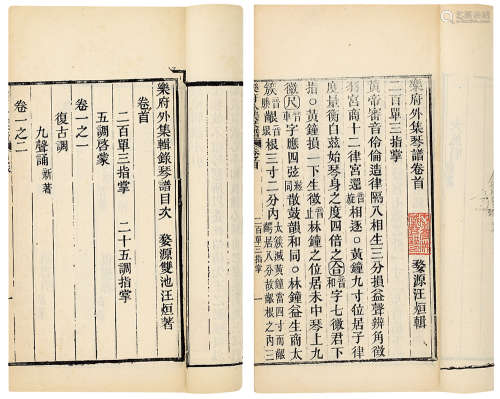 樂府外集輯錄琴譜目次 婺源雙池汪烜著
卷首
二百單三指掌 二十五調指掌
五調啓蒙
卷一之一
復古調
九聲誦 新著
卷一之二
樂府外集琴譜卷首 婺源汪烜輯
二百單三指掌
黃帝審音伶倫造律隔八相生三分損益聲辨角徵
羽宮商十二律宮還音旋相逐○黃鐘九寸位居子律
度量衡自茲始琴身之度四倍之合音和字七徽君下
指○黃鐘損一下生徵音止林鐘之位居未中琴上九
徽尺音車字應四弦同散鼓韻和同○林鐘益生商太
簇根三寸二分內太簇減黃鐘當四寸而居八分故根之內三
二百單三指掌 一